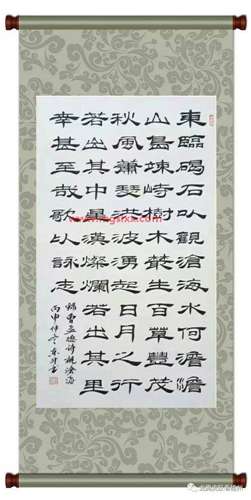 東臨碣石以觀滄海水何澹澹
山島竦峙樹木叢生百草豐茂
秋風蕭瑟洪波湧起日月之行
若出其中星漢燦爛若出其里
幸甚至哉歌以詠志
曹孟德诗觀滄海
丙申仲冬